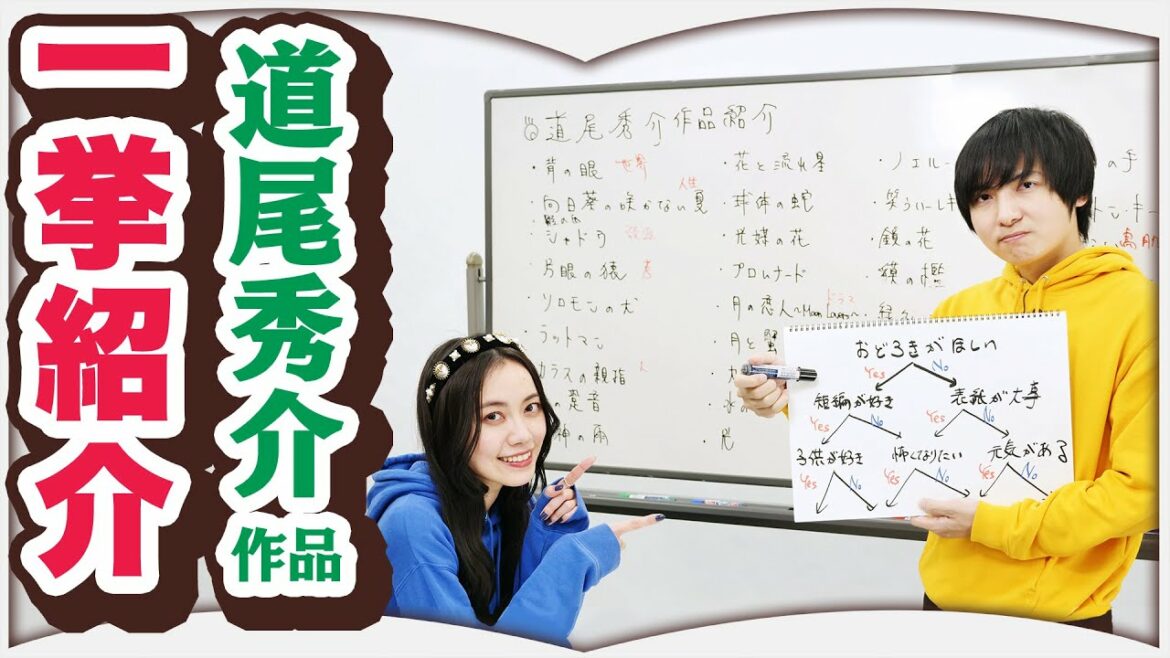 道尾秀介作品
一挙紹介
◎道尾秀介作品紹介
・背の眼
・向日葵の咲かない夏 人生
・シャドウ
・片眼の猿
・ソロモンの犬
ラットマン
カラスの親指 人
神の雨
・花と流れ星
・球体の蛇
・光媒の花
プロムナード
・月の恋人～Moon Lovers～ ドラマ
・月と蟹
・光
・ノエル
の手
・笑うハーレキ
トン・キー
・鏡の花
・貘の檻
おどろきがほしい
Yes No
短編が好き 表紙が大事
Yes No Yes No
子供が好き 怖くなりたい 元気がある
Yes No Yes No Yes No